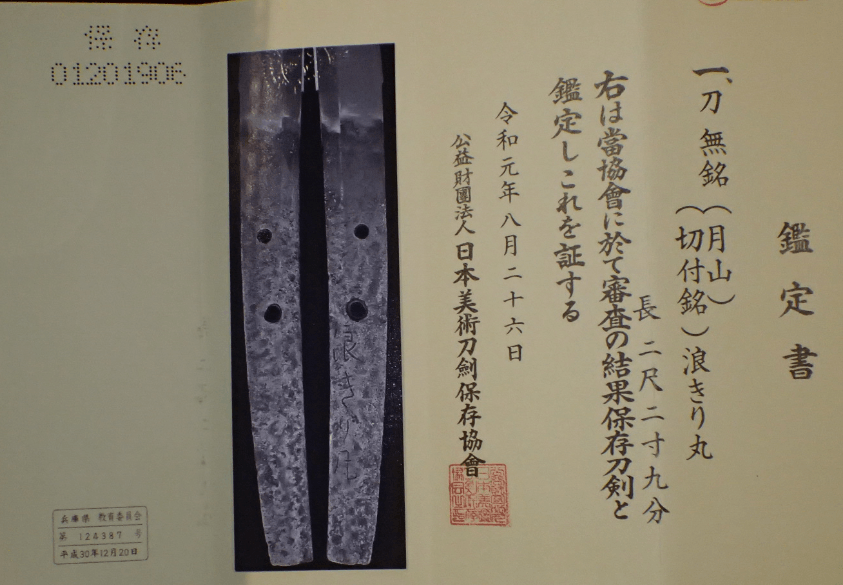 鑑定書
一、刀 無銘(月山)
(切付銘)浪きり丸
長二尺二寸九分
右は當協會に於て審査の結果保存刀剣と
鑑定しこれを証する
令和元年八月二十六日
公益財團法人日本美術刀劍保存協會
浪きり丸
保存
01201906
兵庫県 教育委員会
第 124387 号
平成30年12月20日